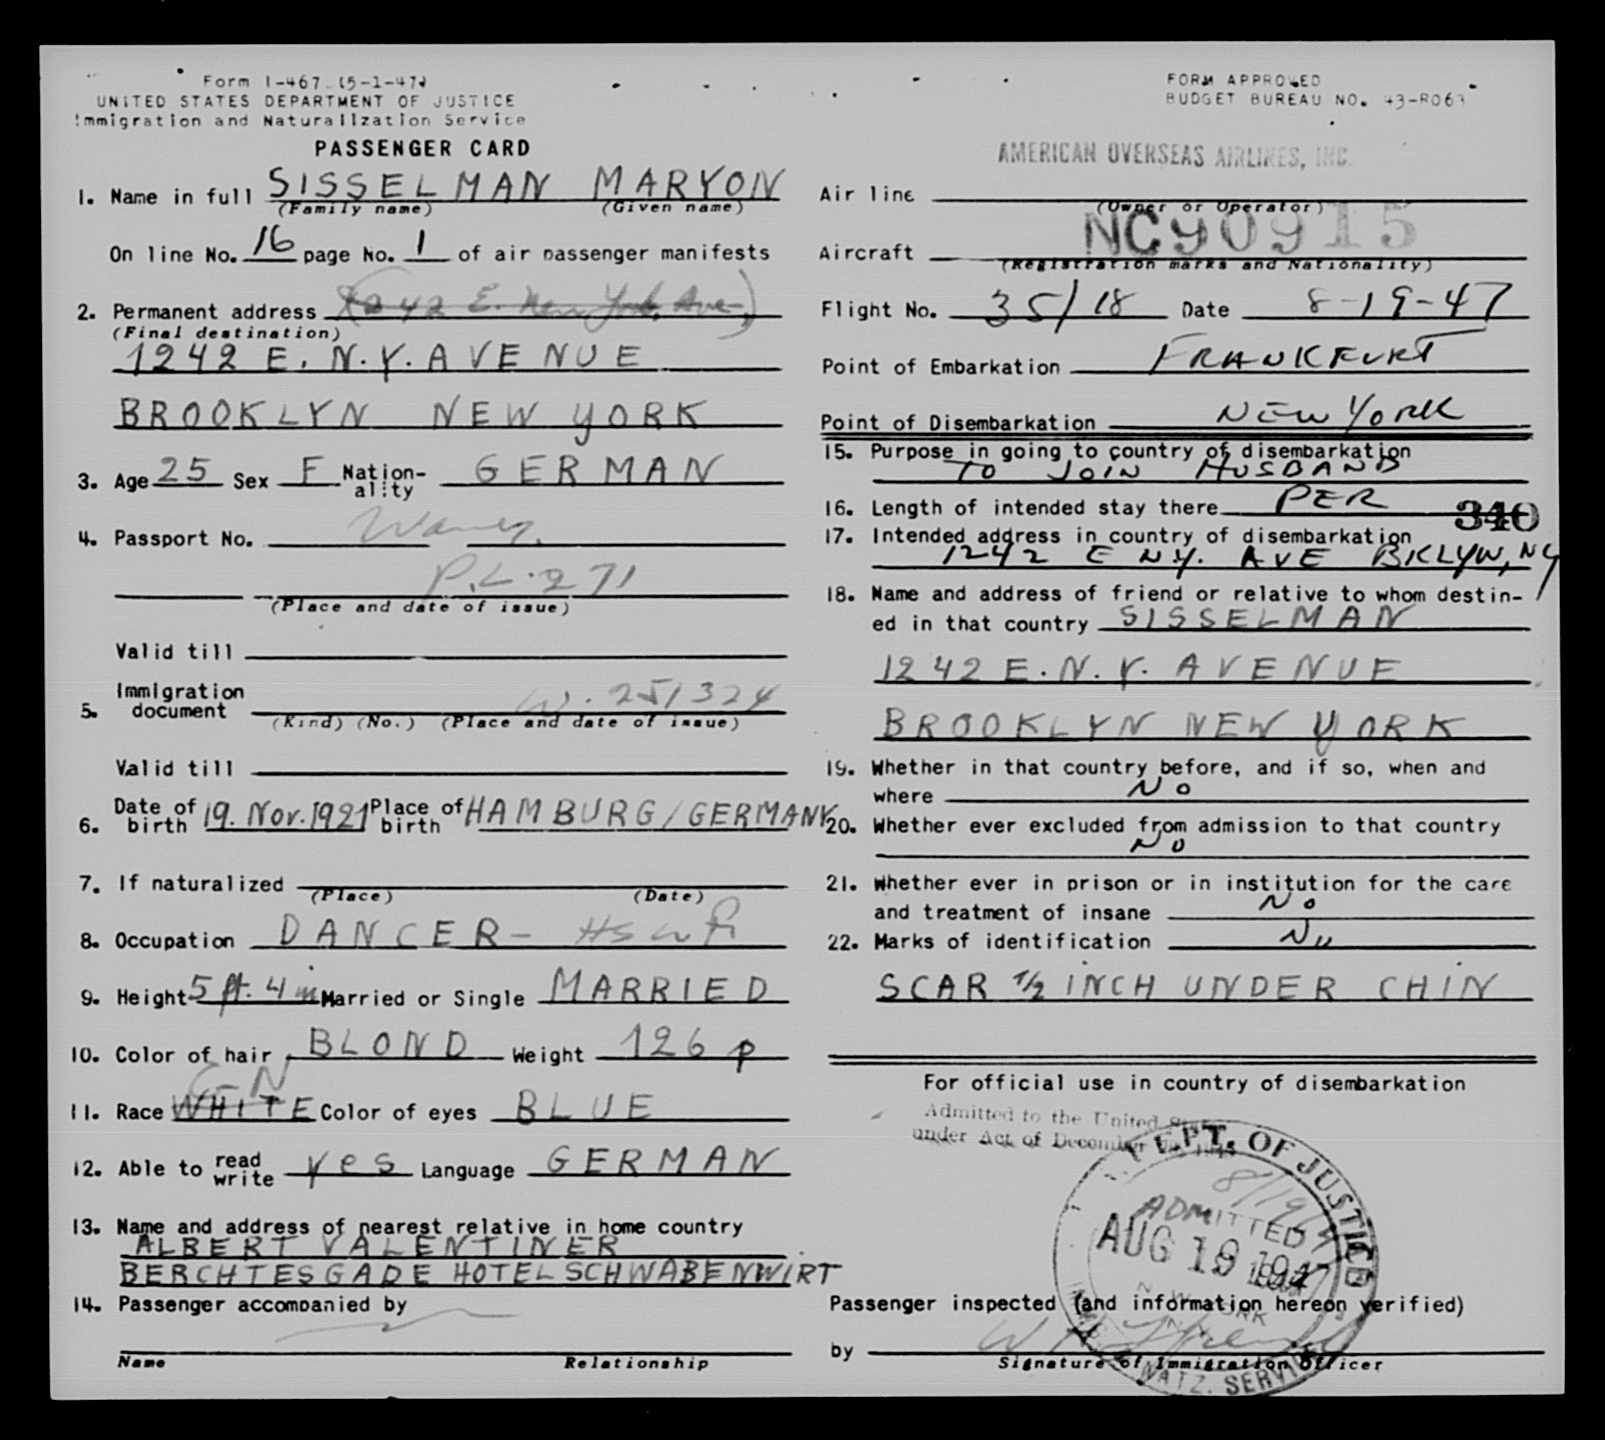 Form I-467 (5-1-47)
UNITED STATES DEPARTMENT OF JUSTICE
Immigration and Naturalization Service
PASSENGER CARD
1. Name in full SISSELMAN MARYON
(Family name) (Given name)
On line No. 16 page No. 1 of air passenger manifests
2. Permanent address 1242 E. New York Ave
(Final destination)
1242 E. N.Y. AVENUE
BROOKLYN NEW YORK
3. Age 25 Sex F Nation-ality GERMAN
4. Passport No.
P.L. 271
(Place and date of issue)
Valid till
5. Immigration document W. 251324
(Kind) (No.) (Place and date of issue)
Valid till
6. Date of birth 19. Nov. 1921 Place of birth HAMBURG/GERMANY
7. If naturalized
(Place) (Date)
8. Occupation DANCER - HSWF
9. Height 5 ft. 4 in Married or Single MARRIED
10. Color of hair BLOND Weight 126 p
G-N
11. Race WHITE Color of eyes BLUE
12. Able to read write yes Language GERMAN
13. Name and address of nearest relative in home country
ALBERT VALENTINER
BERCHTESGADE HOTEL SCHWABENWIRT
14. Passenger accompanied by
Name Relationship
FORM APPROVED
BUDGET BUREAU NO. 43-R063
AMERICAN OVERSEAS AIRLINES, INC.
Air line
(Owner or Operator)
Aircraft NC90915
(Registration marks and Nationality)
Flight No. 35/18 Date 8-19-47
Point of Embarkation FRANKFURT
Point of Disembarkation NEW YORK
15. Purpose in going to country of disembarkation
TO JOIN HUSBAND
16. Length of intended stay there PER
340
17. Intended address in country of disembarkation
1242 E N.Y. AVE BKLYN, NY
18. Name and address of friend or relative to whom destin-
ed in that country SISSELMAN
1242 E. N.Y. AVENUE
BROOKLYN NEW YORK
19. Whether in that country before, and if so, when and
where No
20. Whether ever excluded from admission to that country
No
21. Whether ever in prison or in institution for the care
and treatment of insane No
22. Marks of identification No
SCAR 1/2 INCH UNDER CHIN
For official use in country of disembarkation
Admitted to the United States
under Act of December
DEPT. OF JUSTICE
8/19/47
ADMITTED
AUG 19 1947
NEW YORK
NATZ. SERVICE
Passenger inspected (and information hereon verified)
by
Signature of Immigration Officer